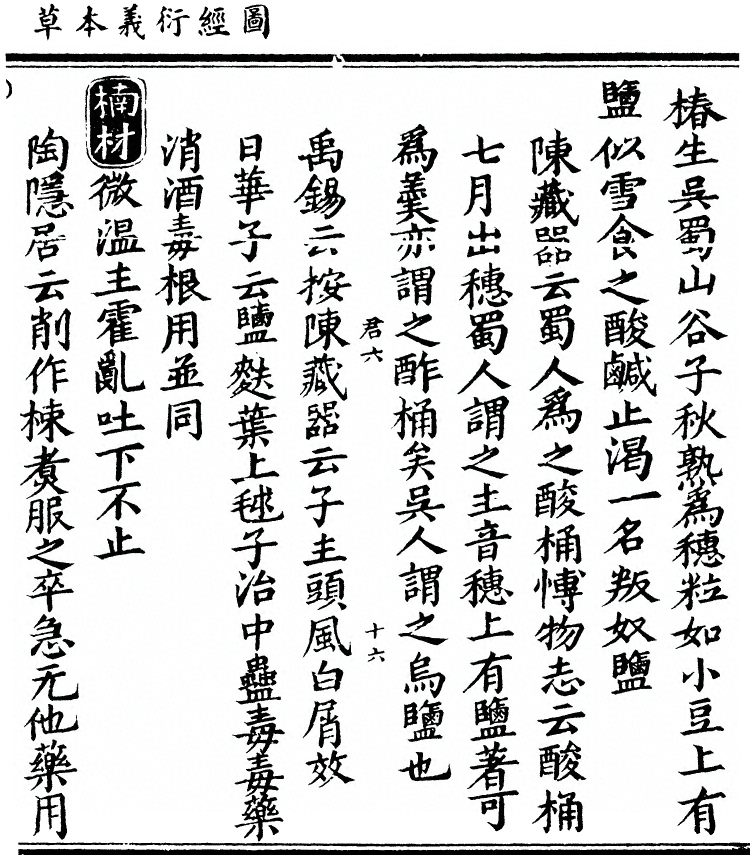 圖經衍義本草
椿生吳蜀山谷子秋熟爲穗粒如小豆上有
鹽似雪食之酸鹹止渴一名叛奴鹽
陳藏器云蜀人爲之酸桶愽物志云酸桶
七月出穗蜀人謂之主音穗上有鹽著可
爲羹亦謂之酢桶矣吳人謂之烏鹽也
君六
十六
禹錫云按陳藏器云子主頭風白屑效
日華子云鹽麩葉上毬子治中蠱毒毒藥
消酒毒根用並同
楠材微溫主霍亂吐下不止
陶隱居云削作栜煑服之卒急无他藥用